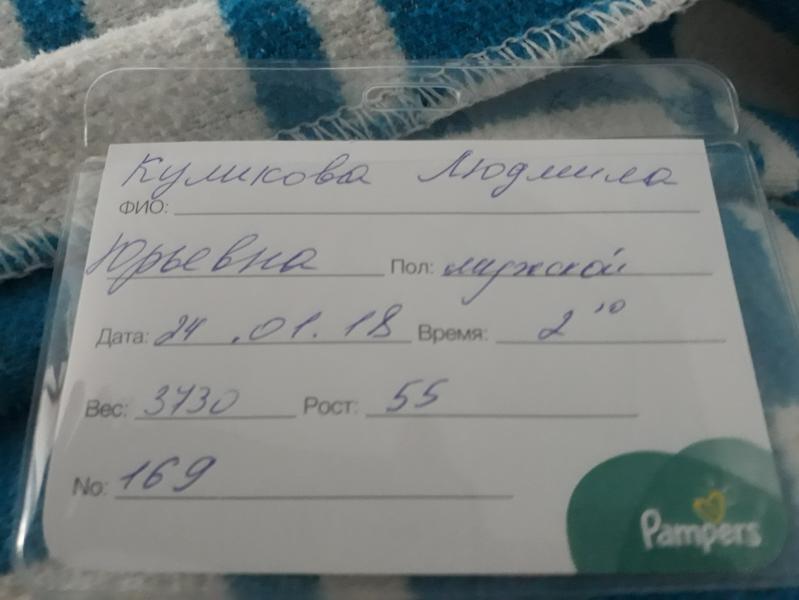 Куликова Людмила
ФИО:
Юрьевна Пол: мужской
Дата: 24.01.18 Время: 2 10
Вес: 3730 Рост: 55
No: 169
Pampers